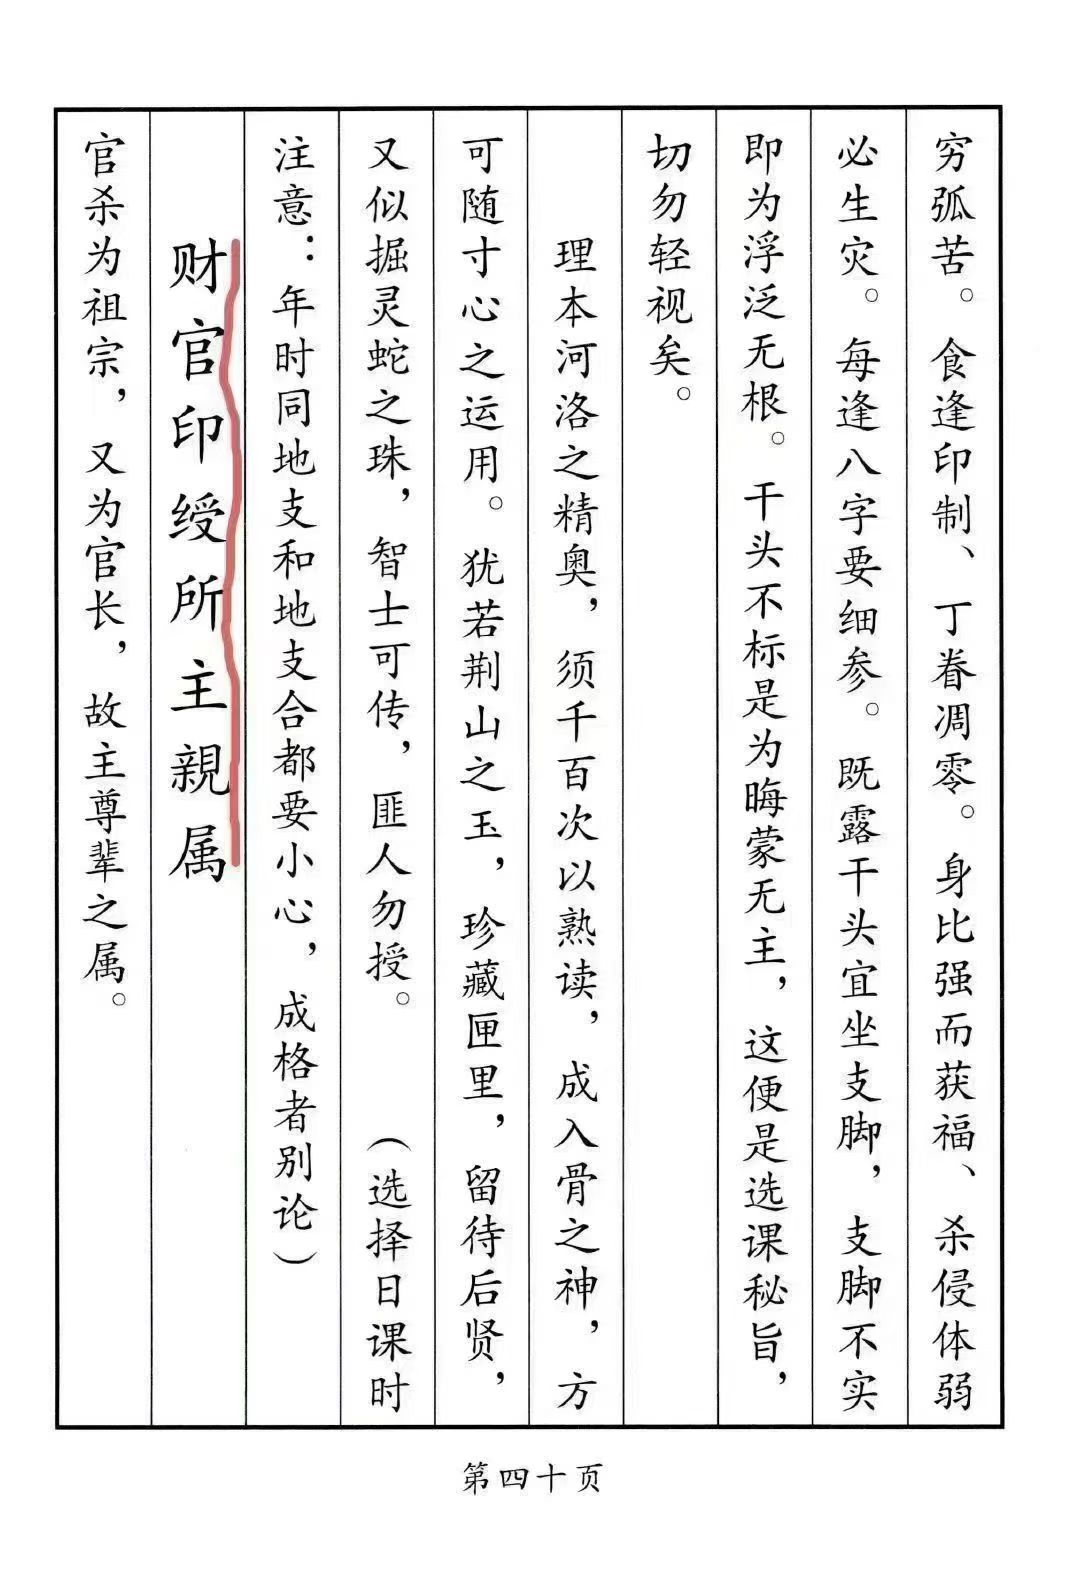 穷孤苦。食逢印制、丁眷凋零。身比强而获福、杀侵体弱
必生灾。每逢八字要细参。既露干头宜坐支脚，支脚不实
即为浮泛无根。干头不标是为晦蒙无主，这便是选课秘旨，
切勿轻视矣。
理本河洛之精奥，须千百次以熟读，成入骨之神，方
可随寸心之运用。犹若荆山之玉，珍藏匣里，留待后贤，
又似掘灵蛇之珠，智士可传，匪人勿授。（选择日课时
注意：年时同地支和地支合都要小心，成格者别论）
财官印绶所主親属
官杀为祖宗，又为官长，故主尊辈之属。
第四十页